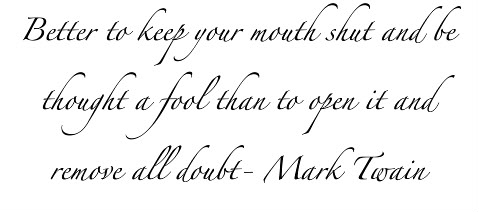 Better to keep your mouth shut and be
thought a fool than to open it and
remove all doubt- Mark Twain